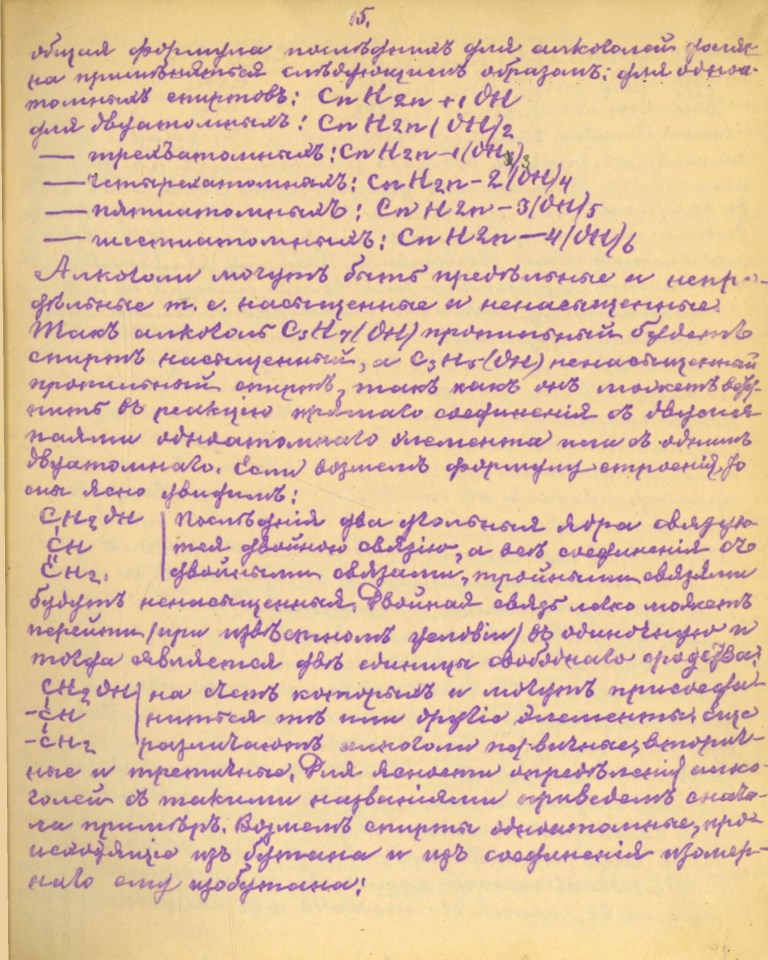 15.
общая формула послѣднихъ для алкоголей долж-
на примѣняться слѣдующимъ образомъ: для одноа-
томныхъ спиртовъ: CnH2n+1OH
для двуатомныхъ: CnH2n(OH)2
— трехъатомныхъ: CnH2n-1(OH)3
— четырехатомныхъ: CnH2n-2(OH)4
— пятиатомныхъ: CnH2n-3(OH)5
— шестиатомныхъ: CnH2n-4(OH)6
Алкоголи могутъ быть предѣльные и непре-
дѣльные т. е. насыщенные и ненасыщенные.
Такъ алкоголь C3H7(OH) пропильный будетъ
спиртъ насыщенный, а C3H5(OH) ненасыщенный
пропильный спиртъ, такъ какъ онъ можетъ всту-
пить въ реакцію прямаго соединенія съ двумя
паями одноатомнаго элемента или съ однимъ
двуатомнаго. Если возмемъ формулу строенія, то
мы ясно увидимъ:
CH2OH | Послѣднія два угольныя ядра связую-
CH | тся двойною связію, а всѣ соединенія съ
CH2. | двойными связами, тройными связями
будутъ ненасыщенныя. Двойная связь легко можетъ
перейти (при извѣстномъ условіи) въ одиночную и
тогда является двѣ единицы свободнаго сродства:
CH2OH | на счетъ которыхъ и могутъ присоеди-
-CH | ниться тѣ или другіе элементы. Еще
-CH2 | различаютъ алкоголи первичные, вторич-
ные и третичные. Для ясности опредѣленія алко-
голей съ такими названіями приведемъ снача-
ла примѣръ. Возмемъ спирты одноатомные, про-
исходящіе изъ бутана и изъ соединенія изомер-
наго ему изобутана: